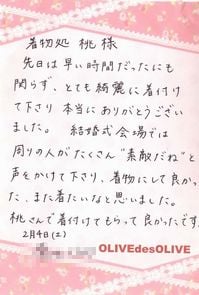 着物処 桃 様
先日は早い時間だったにも
関らず、とても綺麗に着付け
て下さり 本当にありがとうござい
ました。 結婚式会場では
周りの人がたくさん“素敵だね”と
声をかけて下さり、着物にして良かっ
た、また着たいなと思いました。
桃さんで着付けてもらって良かったです。
2月4日(土)
OLIVEdesOLIVE